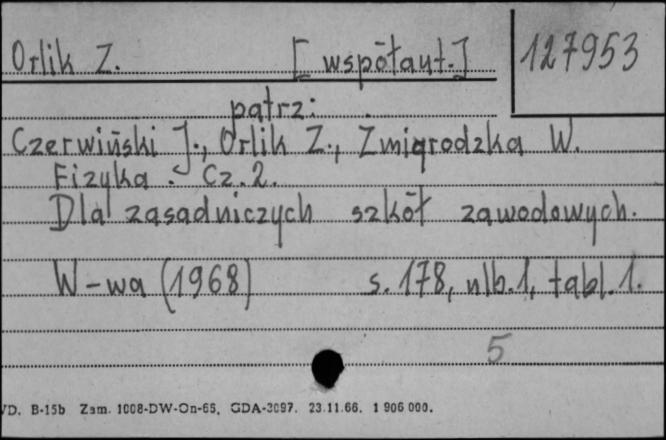 Orlik Z. [współaut.] 127953
patrz:
Czerwiński J., Orlik Z., Zmigrodzka W.
Fizyka. Cz. 2.
Dla zasadniczych szkół zawodowych.
W-wa (1968) s. 178, nlb. 1, tabl. 1.
5
VD. B-15b Zam. 1008-DW-On-65, GDA-3097. 23.11.66. 1 906 000.